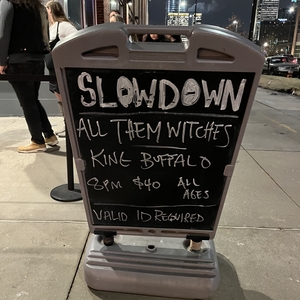 SLOWDOWN
ALL THEM WITCHES
KING BUFFALO
8PM $40 ALL AGES
VALID ID REQUIRED